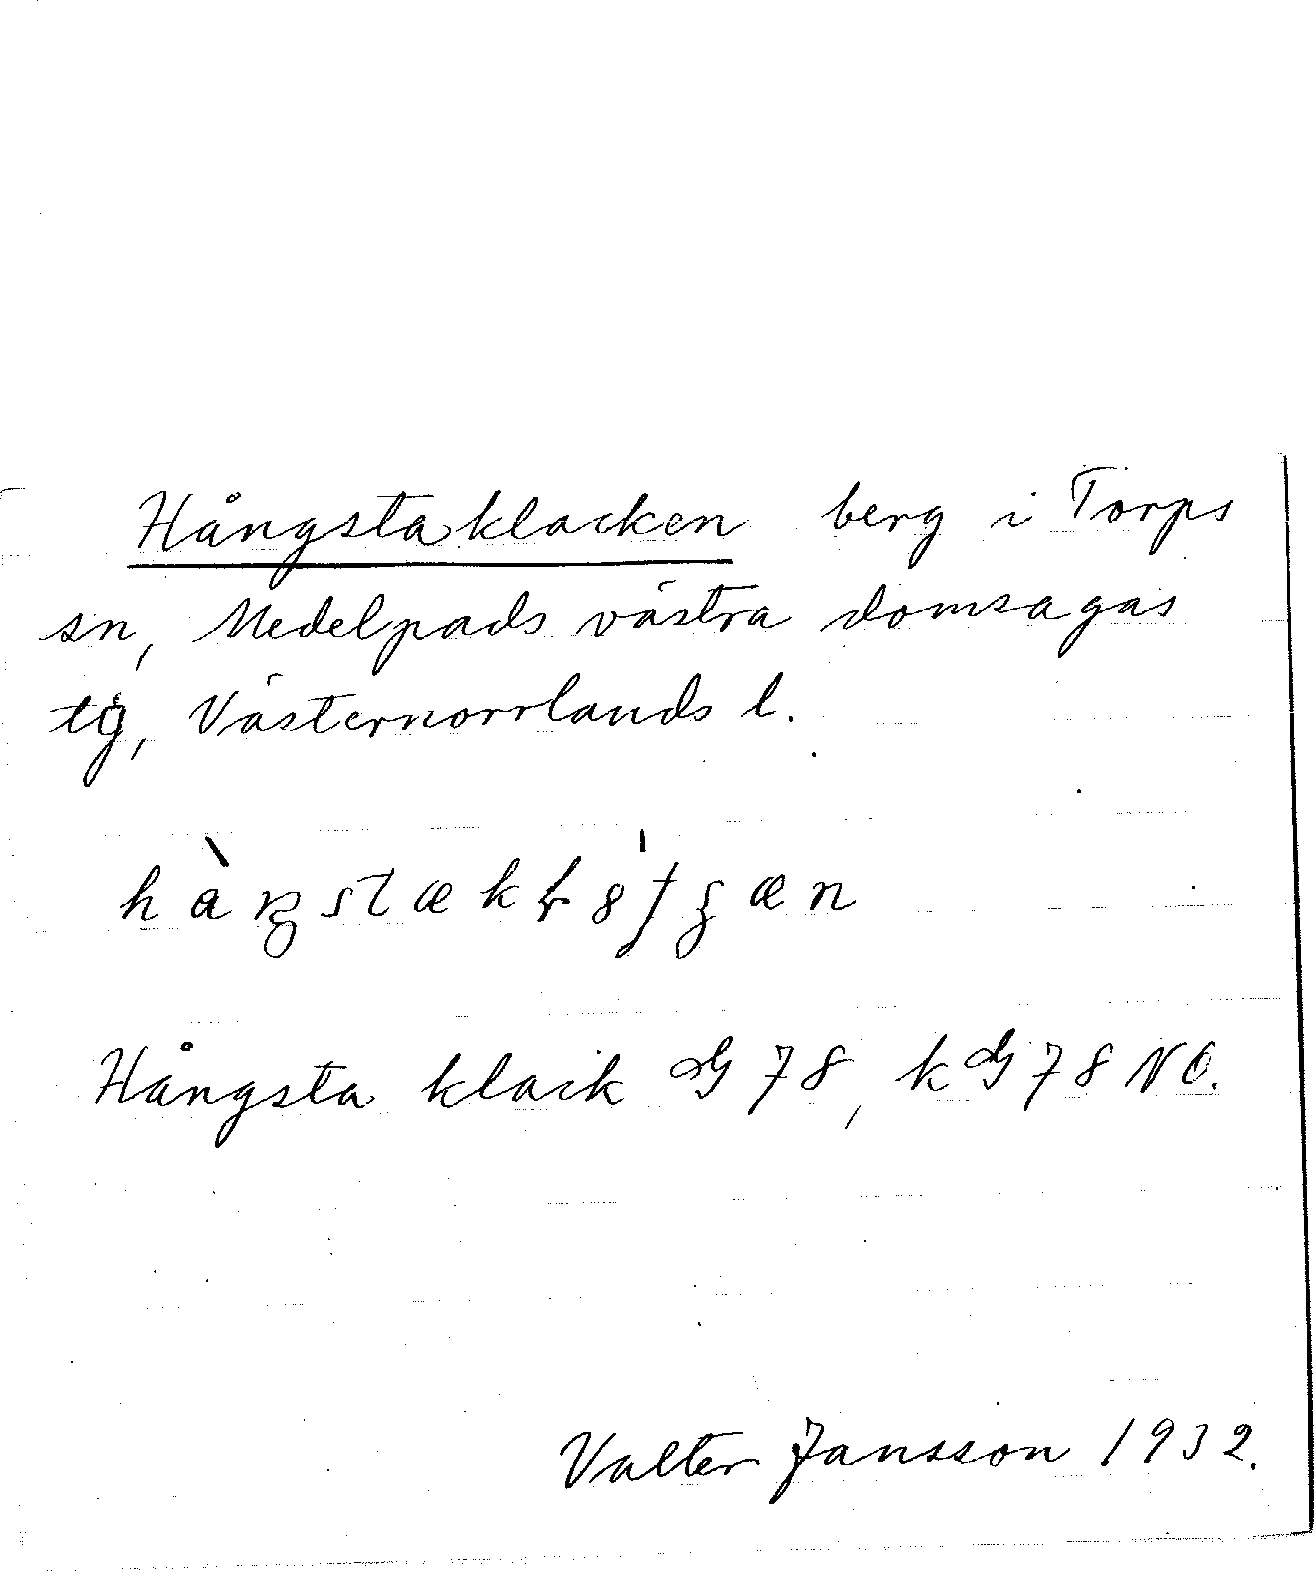 Hångstaklacken berg i Torps
sn, Medelpads västra domsagas
tg, Västernorrlands l.
Hångsta klack G 78, k G 78 NO.
Valter Jansson 1932.